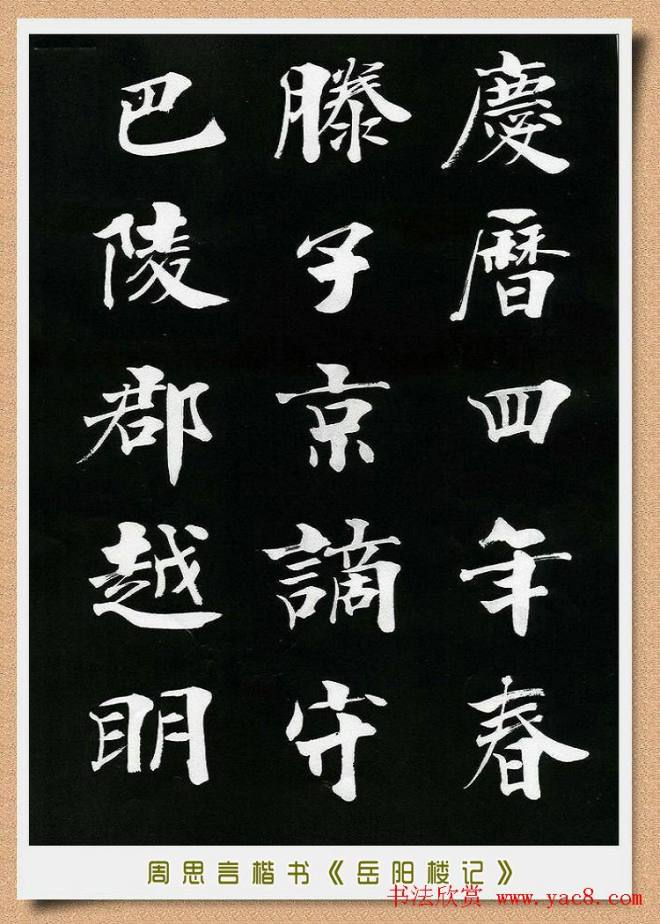 慶曆四年春
滕子京謫守
巴陵郡越明
周思言楷书《岳阳楼记》
书法欣赏 www.yac8.com